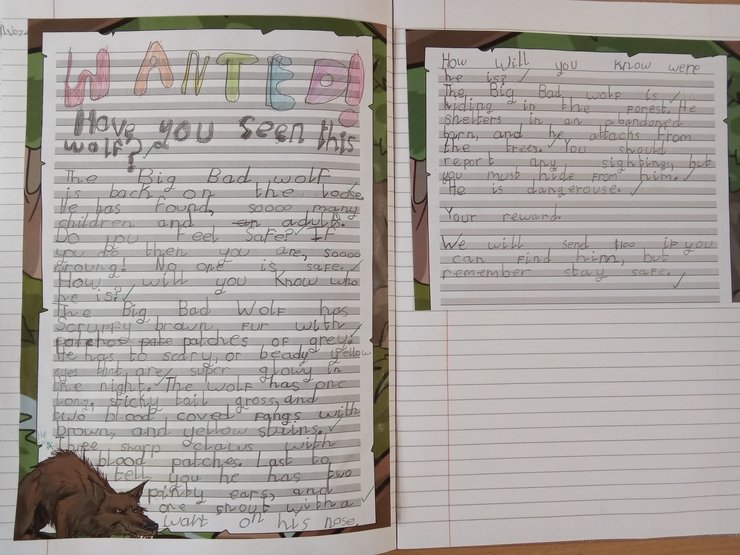 WANTED!
Have you seen this
wolf?
The Big Bad wolf
is back on the loose.
He has found, soooo many
children and adults.
Do you feel safe? If
you do then you are, soooo
wroung! No one is safe.
How will you Know who
he is?
The Big Bad Wolf has
scruffy brown fur with
patches of grey.
He has to scary, or beady yellow
eyes that are super glowy in
the night. The wolf has one
long, sticky tail gross, and
two blood coved fangs with
brown, and yellow stains.
Three sharp claws with
blood patches. Last to
tell you he has two
pointy ears, and
one snout with a
wart on his nose.
How will you know were
he is?
The Big Bad wolf is
hiding in the forest. He
shelters in an abandoned
barn, and he attachs from
the trees. You should
report any sighting, but
you must hide from him.
He is dangerouse.
Your reward.
We will send $100 if you
can find him, but
remember stay safe.